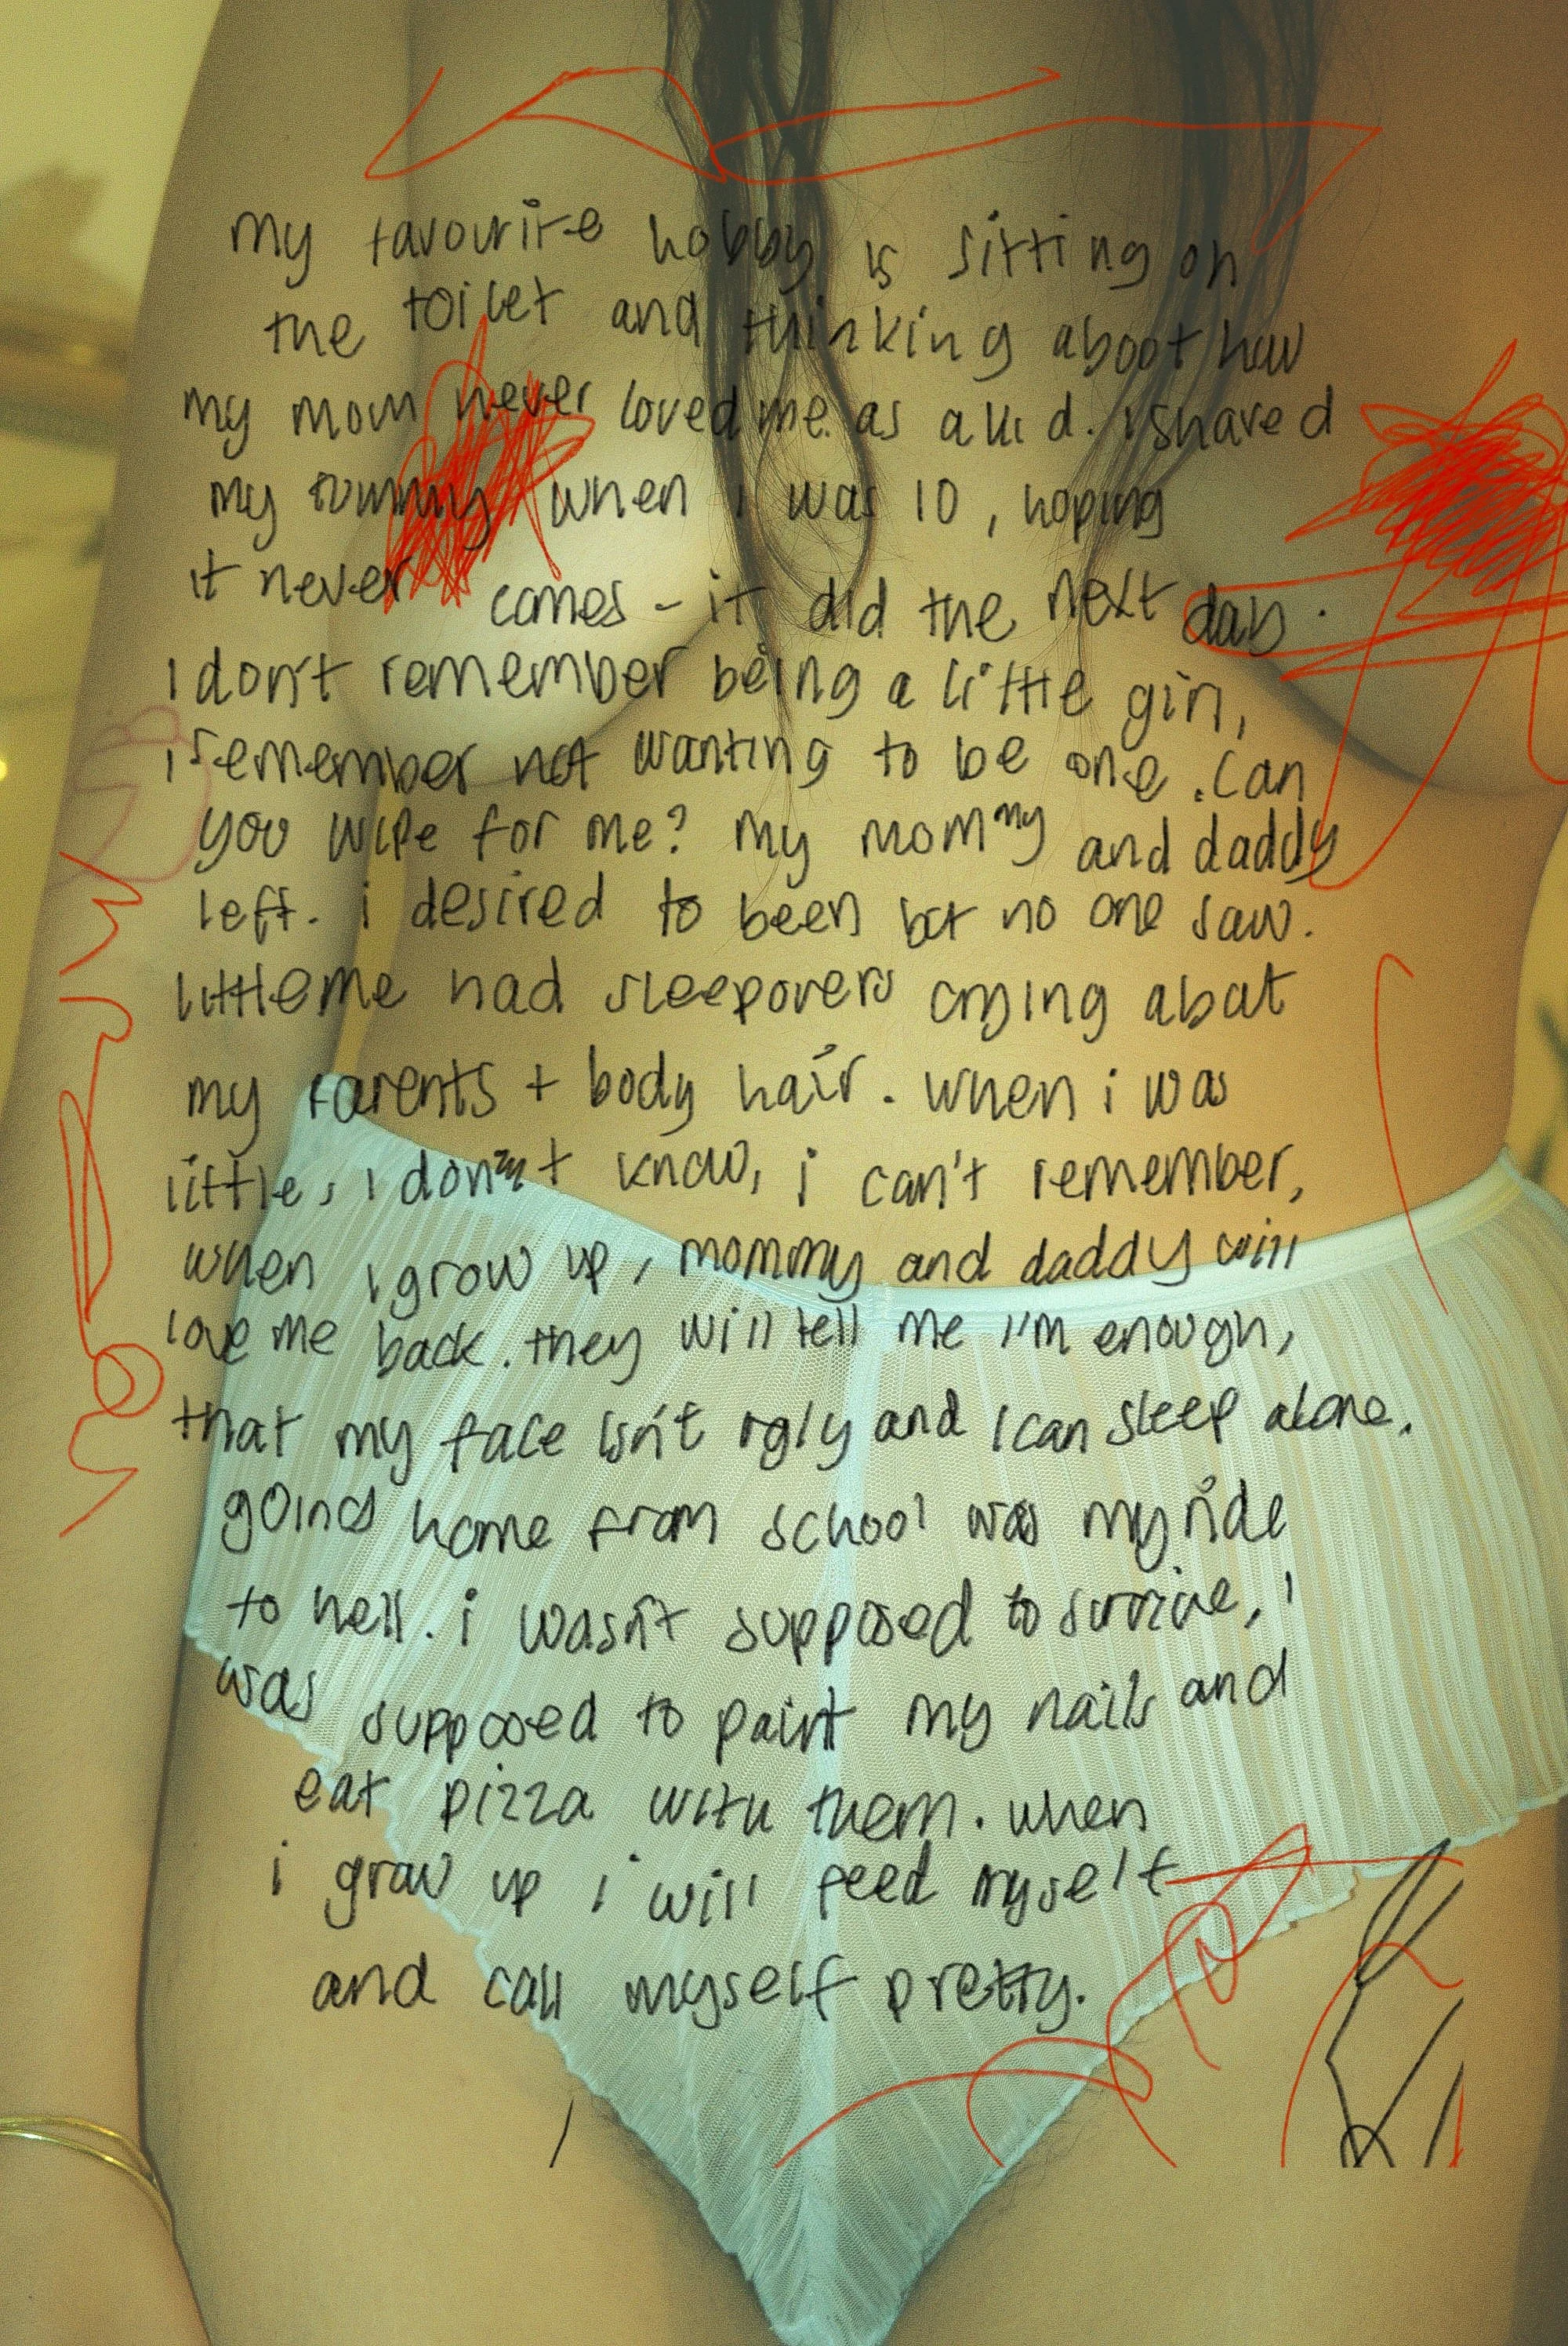 my favourite hobby is sitting on
the toilet and thinking about how
my mom never loved me as a kid. i shaved
my tummy when i was 10, hoping
it never comes - it did the next day.
I don't remember being a little girl,
i remember not wanting to be one. can
you wipe for me? my mommy and daddy
left. i desired to been but no one saw.
little me had sleepovers crying about
my parents + body hair. when i was
little, i don't know, i can't remember,
when i grow up, mommy and daddy will
love me back. they will tell me I'm enough,
that my face isn't ugly and I can sleep alone.
going home from school was my ride
to hell. i wasn't supposed to survive, i
was supposed to paint my nails and
eat pizza with them. when
i grow up i will feed myself
and call myself pretty.